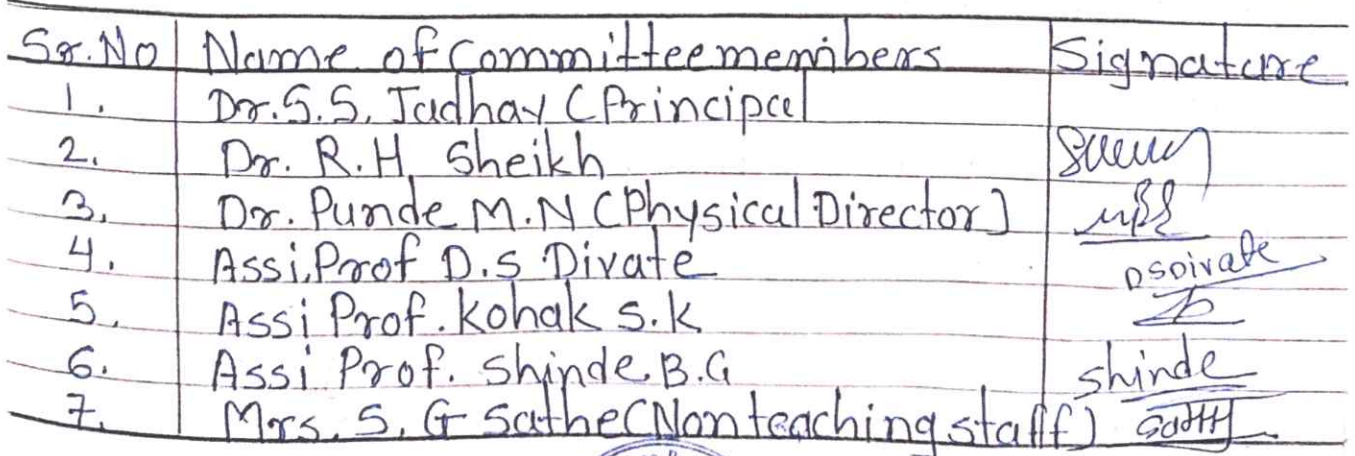 Sr.No Name of Committee members Signature
1. Dr.S.S. Jadhav (Principal
2. Dr. R.H. Sheikh
3. Dr. Punde M.N (Physical Director)
4. Assi.Prof D.S Divate DSDivate
5. Assi Prof. Kohak S.K
6. Assi Prof. Shinde B.G Shinde
7. Mrs. S. G Sathe (Non teaching staff)